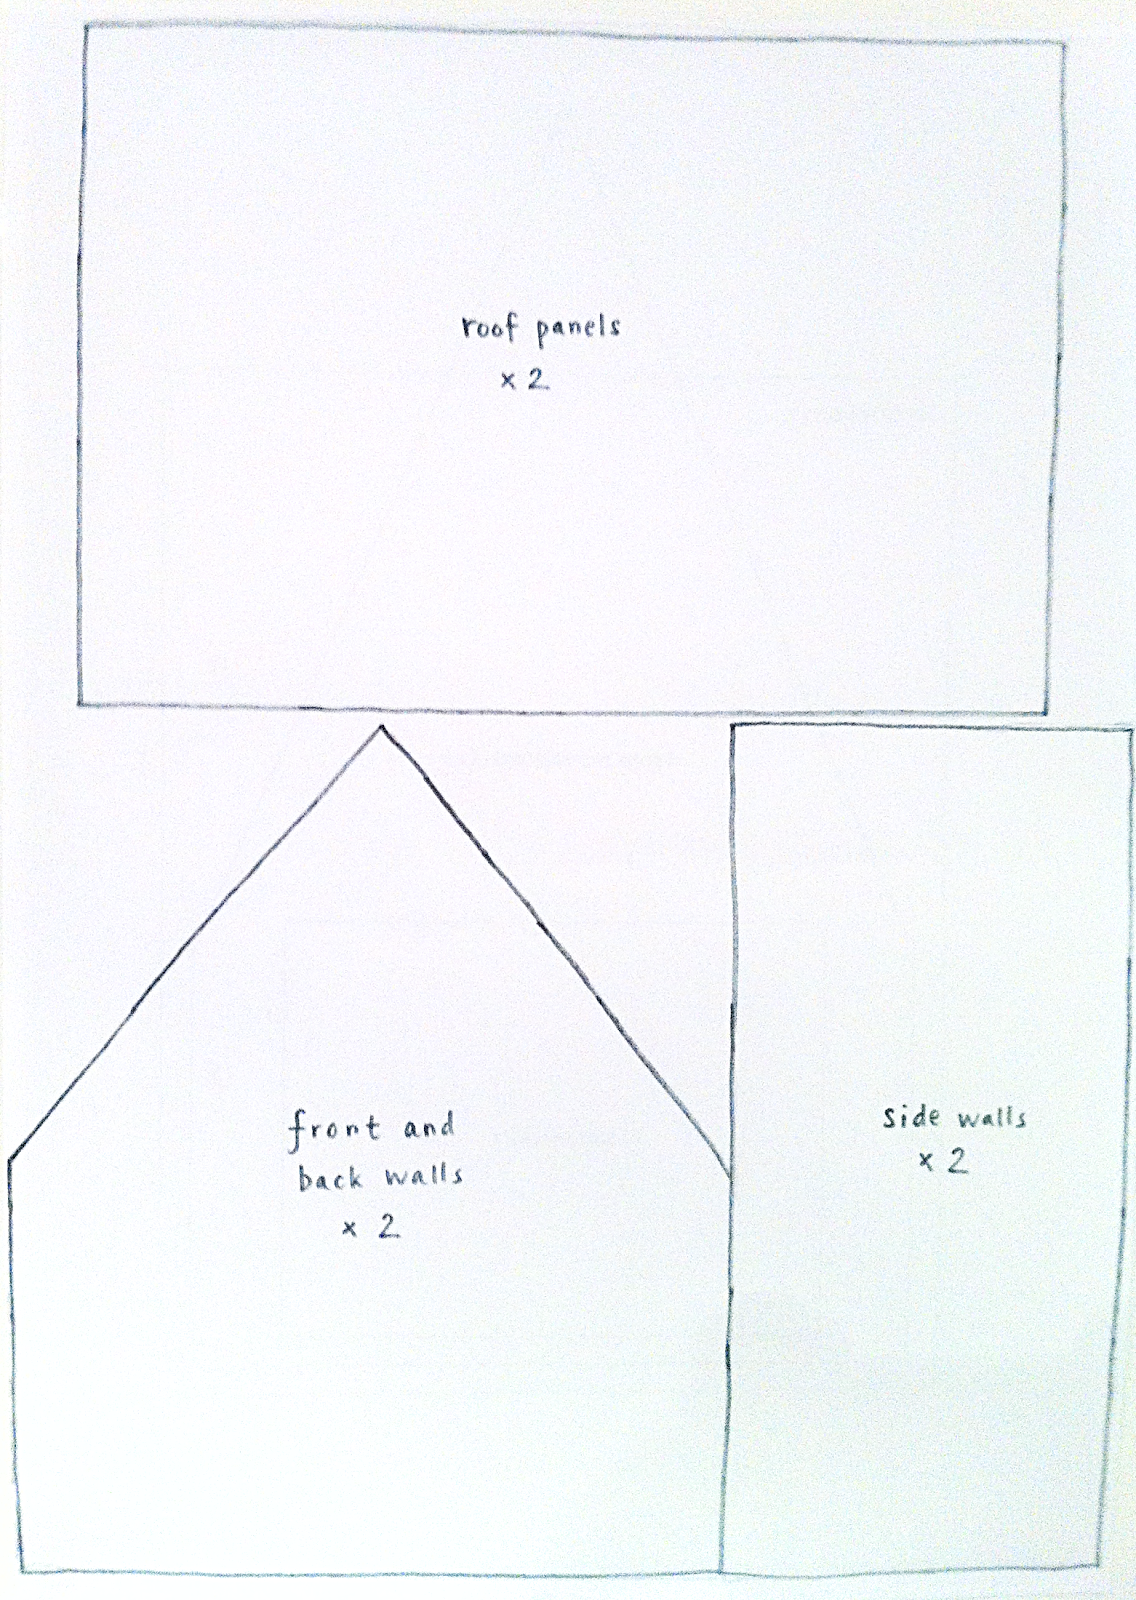 roof panels
x 2
front and
back walls
x 2
side walls
x 2